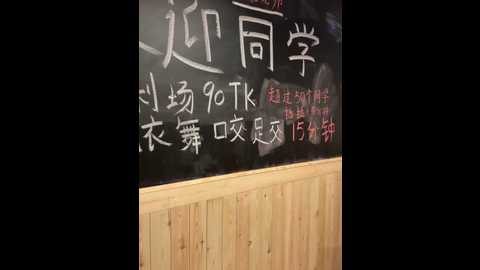 迎同学
场90TK
超过50个同学
衣舞咬足交
15分钟